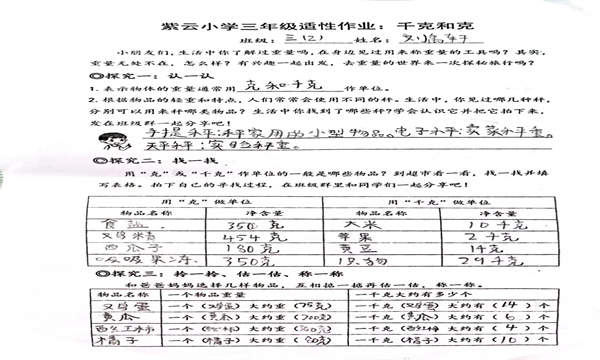 紫云小学三年级适性作业：千克和克
班级：三(2) 姓名：
小朋友们，生活中你了解过重量吗，在身边见过用来称重量的工具吗？其实，
重量无处不在，怎么样？有兴趣一起出发，去重量的世界来一次探秘旅行吗？
◎探究一：认一认
1. 表示物体的重量通常用 克和千克 作单位。
2. 根据物品的轻重和特点，人们常常会使用不同的秤。生活中，你见过哪几种秤，
分别可以用来秤哪类物品？生活中你找到了哪些秤？学会认识它并把它拍下来，
发在班级群一起分享吧！
手提秤：秤家用的小型物品。电子秤：卖菜秤重。
天平秤：实验秤重。
◎探究二：找一找
用“克”或“千克”作单位的一般是哪些物品？到超市看一看，找一找并填
写表格。拍下自己的寻找过程，在班级群里和同学们一起分享吧！
用“克”做单位 用“千克”做单位
物品名称 净含量 物品名称 净含量
食盐 350克 大米 10千克
鸡精 454克 苹果 2千克
西瓜子 180克 黄豆 1千克
吸吸果冻 350克 29千克
◎探究三：拎一拎、估一估、称一称
和爸爸妈妈选择几样物品，互相掂一掂再估一估，称一称。
物品名称 一个物品重量 一千克大约有多少个
鸡蛋 一个（鸡蛋）大约重（75克） 一千克（鸡蛋）大约有（14）个
黄瓜 一个（黄瓜）大约重（200克） 一千克（黄瓜）大约有（6）个
西红柿 一个（西红柿）大约重 一千克（西红柿）大约有（4）个
橘子 一个（橘子）大约重（80克） 一千克（橘子）大约有（10）个